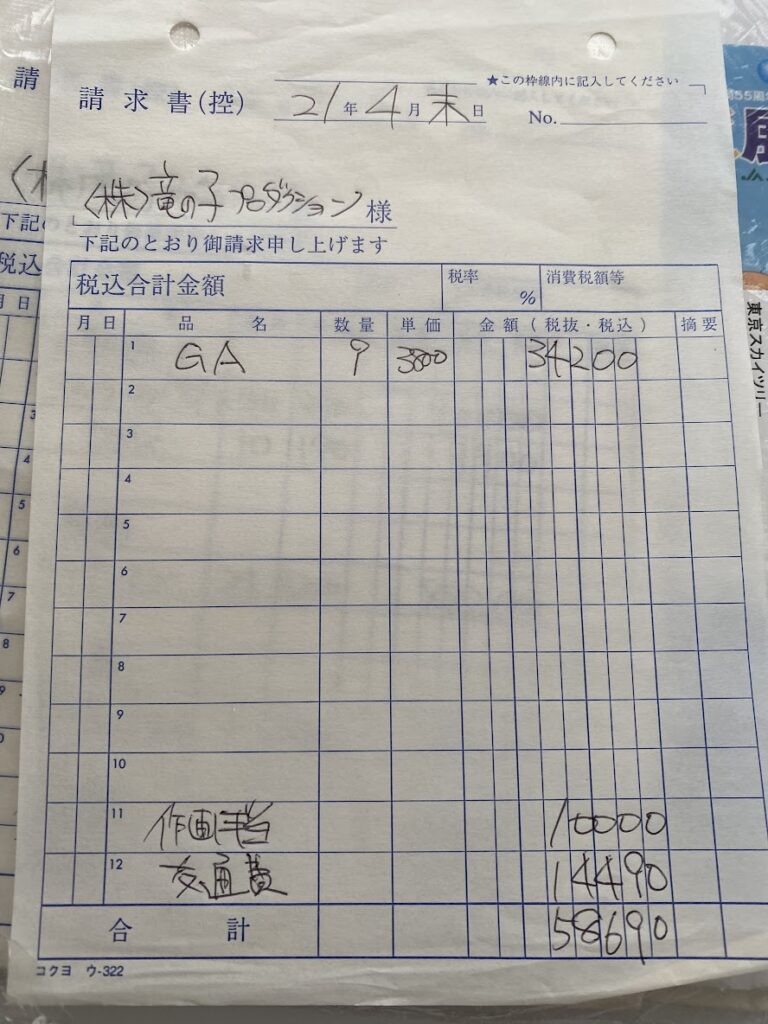 ★この枠線内に記入してください
請求書(控) 21年4月末日 No.
<株>竜の子プロダクション様
下記のとおり御請求申し上げます
税込合計金額 税率 % 消費税額等
月 日 品名 数量 単価 金額(税抜・税込) 摘要
1 GA 9 3800 34200
2
3
4
5
6
7
8
9
10
11 作画手当 10000
12 交通費 14490
合計 58690
コクヨ ウ-322
請
下記
税込
月 日
3
4
5
6
7
8
9
東京スカイツリー